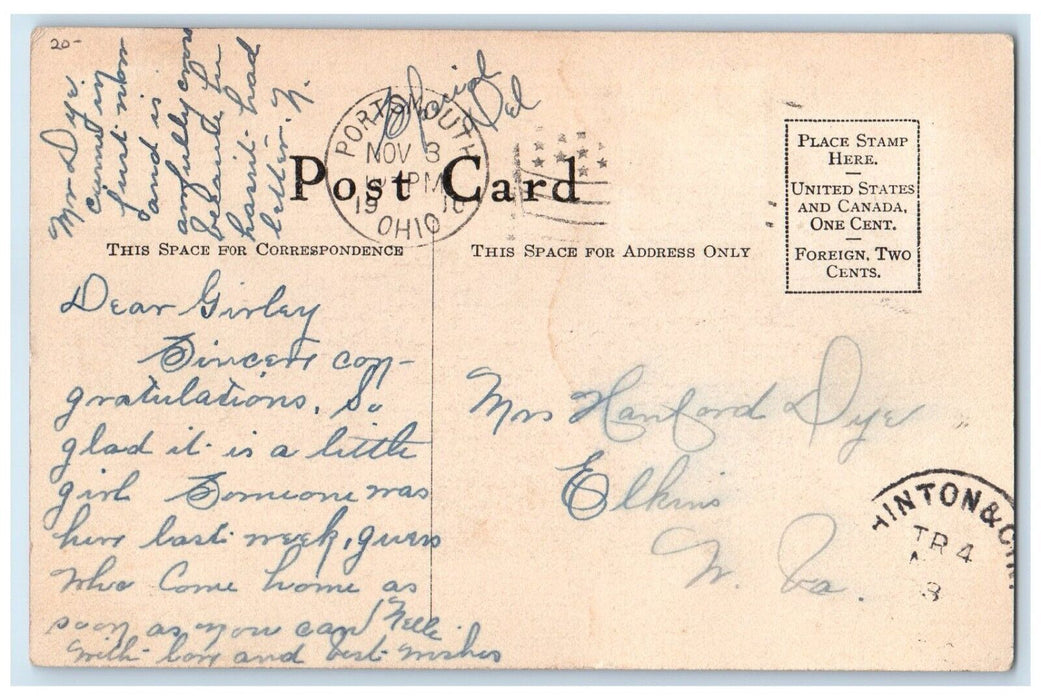 20-
Mrs Dye
came in
just now
and is
awfully
because he
hasn't had
letter. N.
Special
Del
PORTSMOUTH
NOV 3
PM
19
OHIO
Post Card
THIS SPACE FOR CORRESPONDENCE
THIS SPACE FOR ADDRESS ONLY
PLACE STAMP
HERE.
UNITED STATES
AND CANADA,
ONE CENT.
FOREIGN, TWO
CENTS.
Dear Girley
Sincere con-
gratulations. So
glad it is a little
girl Someone was
here last week, guess
who Come home as
soon as you can Nelle.
with love and best wishes
Mrs Hanford Dye
Elkins
W. Va.
HINTON &
TR 4
3